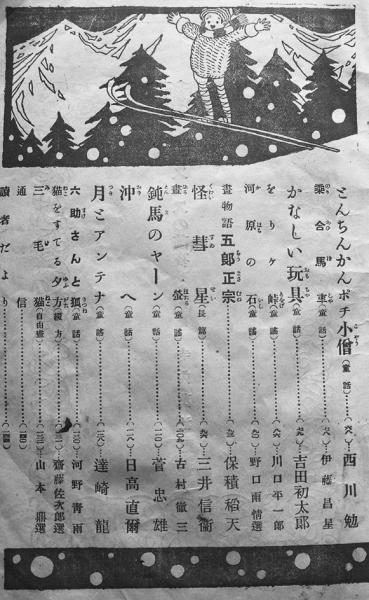 とんちんかんポチ小僧(童話)…西川勉
乗合馬車(童謡)…伊藤昌星
かなしい玩具(童話)…吉田初太郎
をりヶ峠(童謡)…川口平一郎
河原の石(童謡)…野口雨情選
畫物語 五郎正宗…保積稲天
怪彗星(長篇)…三井信衞
晝螢(童謡)…古村徹三
鈍馬のヤーン(童話)…(一一〇)…菅忠雄
沖へ(童話)…日高直爾
月とアンテナ(童話)…達崎龍
六助さんと狐(童話)…河野青雨
猫をすてる夕方(綴方)…齋藤佐次郎選
三毛猫(自由畫)…山本鼎選
通信
讀者だより